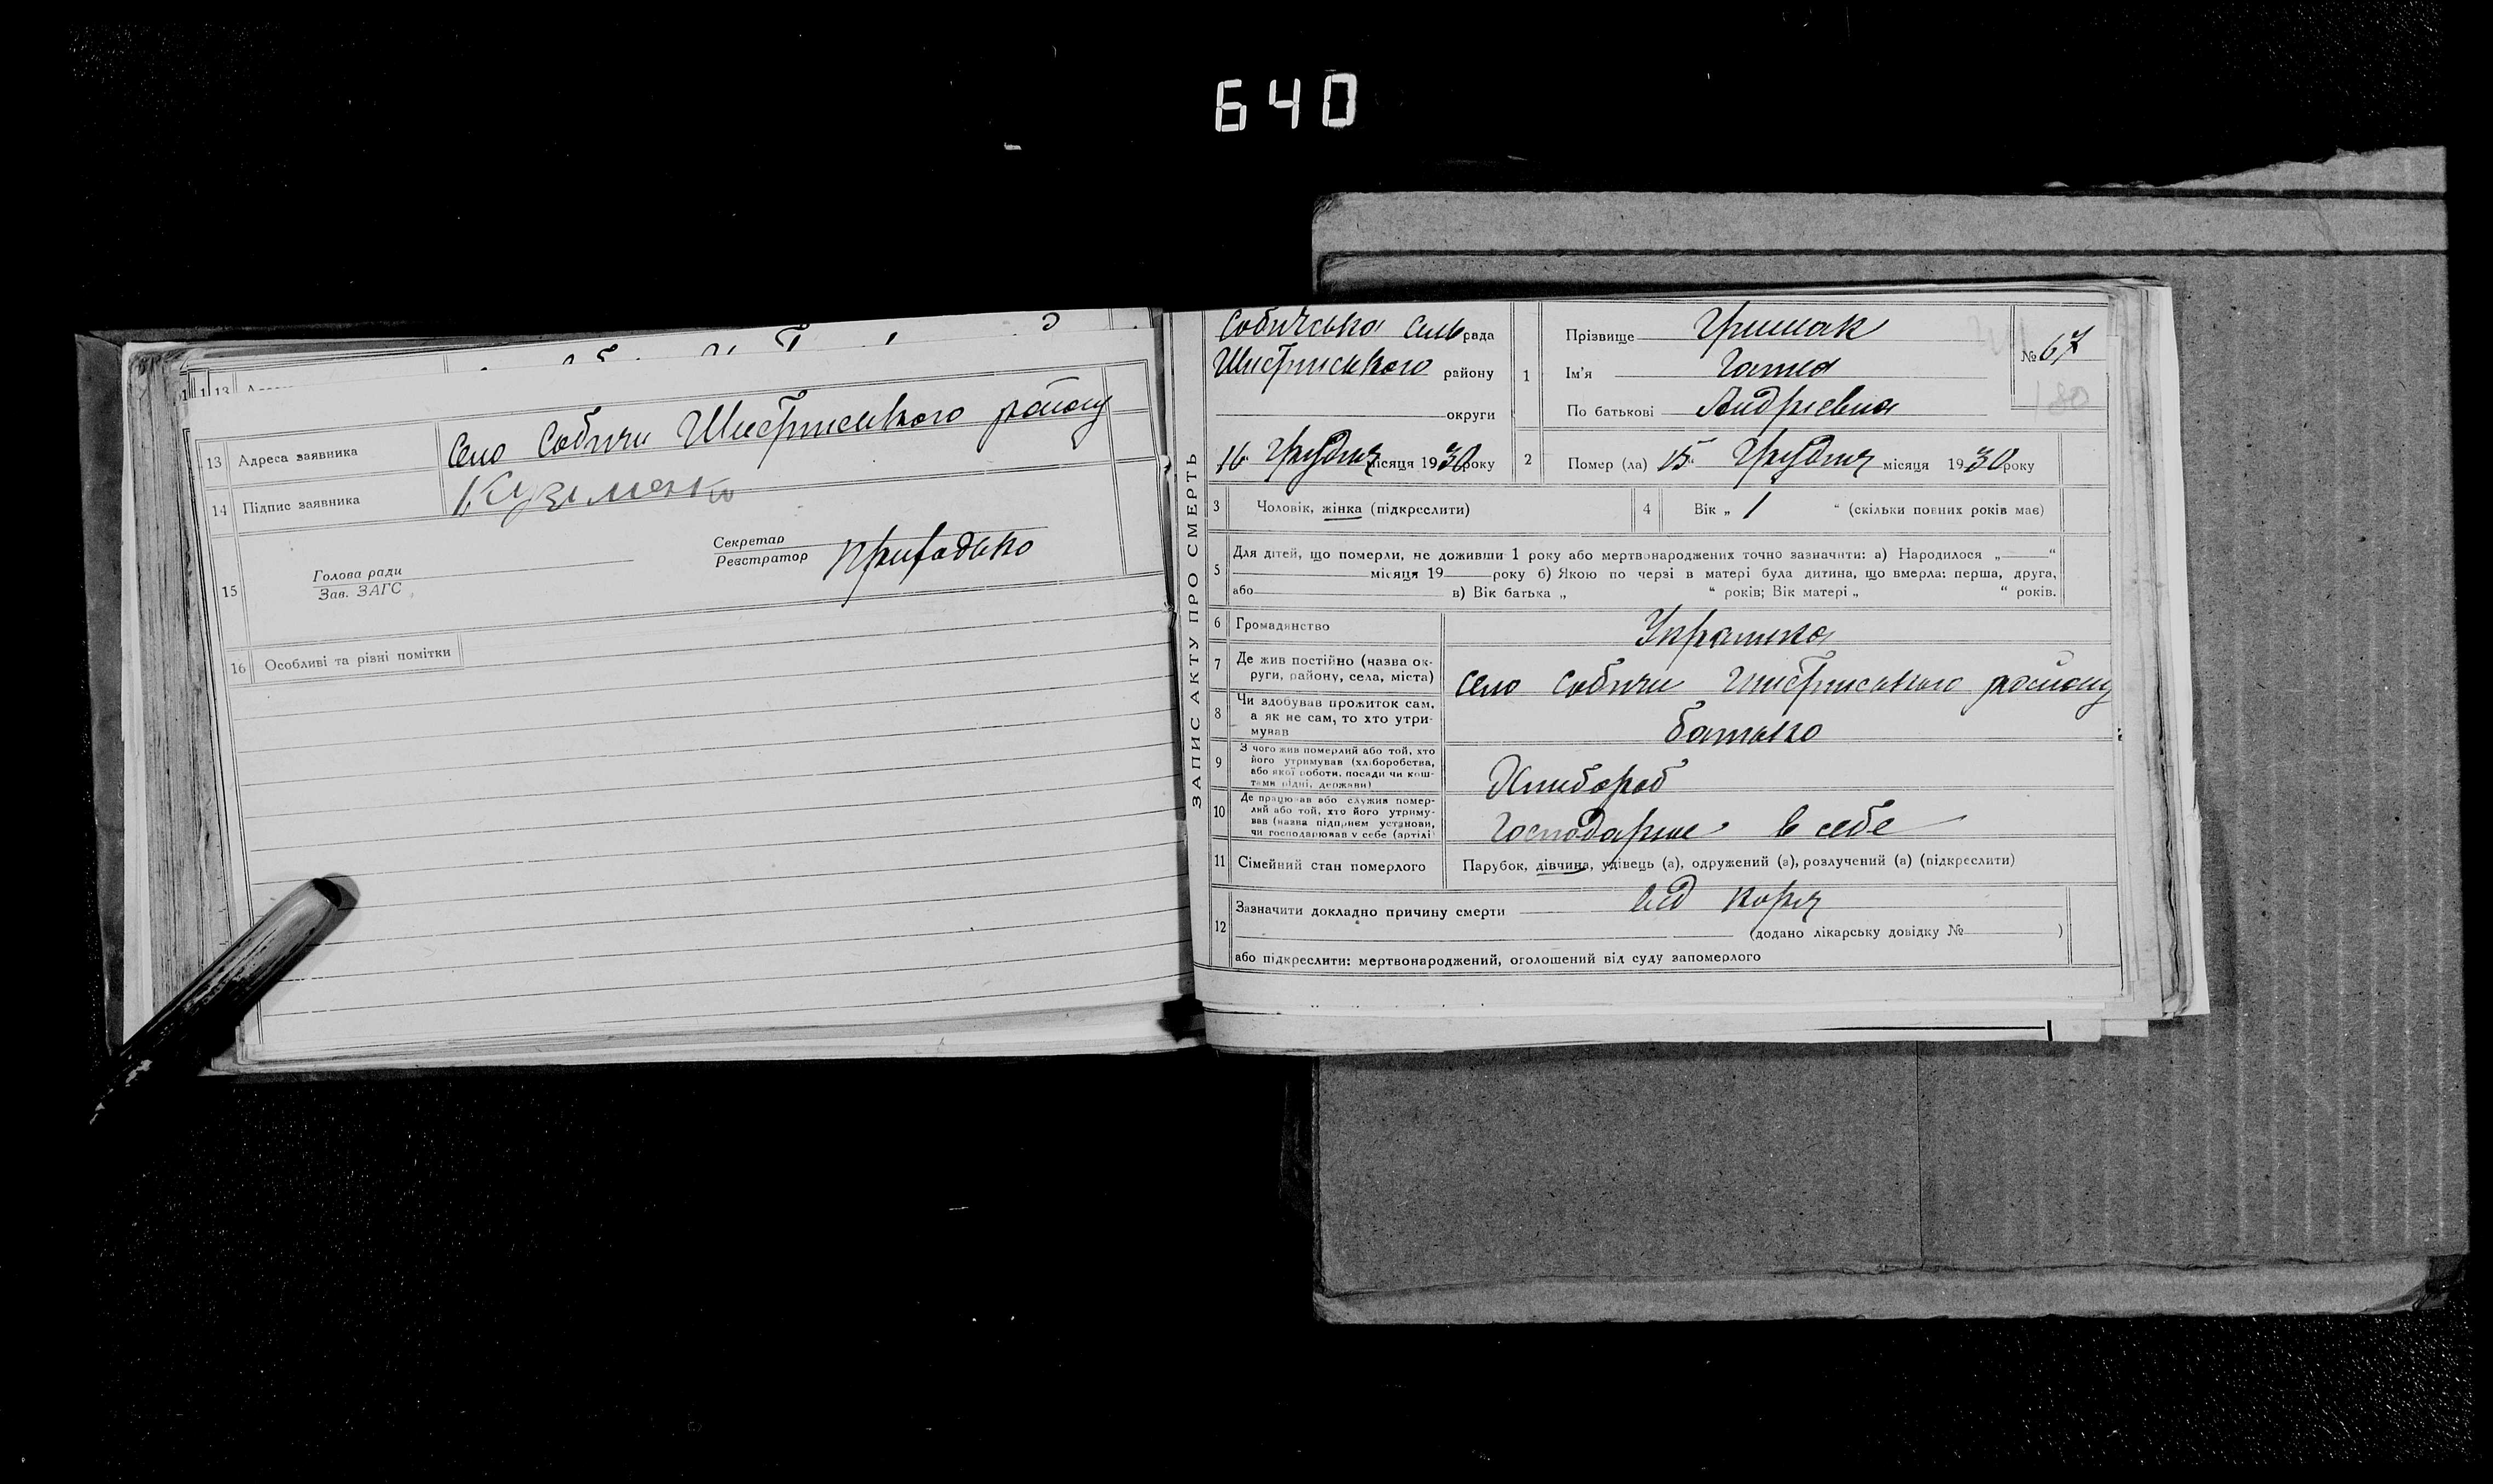 640
13 Адреса заявника Село Собичи Шостринського району
14 Підпис заявника Кузіменко
15 Голова ради
Зав. ЗАГС
Секретар
Реєстратор
16 Особливі та різні помітки
ЗАПИС АКТУ ПРО СМЕРТЬ
Собичська Сель рада
району
округи
16 Грудня місяця 1930 року
1 Прізвище Гришак
Ім'я
По батькові Андриевна
№ 67
180
2 Помер (ла) 15 Грудня місяця 1930 року
3 Чоловік, жінка (підкреслити)
4 Вік „ 1 “ (скільки повних років має)
5 Для дітей, що померли, не доживши 1 року або мертвонароджених точно зазначити: а) Народилося „ “
місяця 19 року б) Якою по черзі в матері була дитина, що вмерла: перша, друга,
або в) Вік батька „ “ років; Вік матері „ “ років.
6 Громадянство Украинка
7 Де жив постійно (назва ок-
руги, району, села, міста) село Собичи району
8 Чи здобував прожиток сам,
а як не сам, то хто утри-
мував батько
9 З чого жив померлий або той, хто
його утримував (хліборобства,
або якої роботи, посади чи кош-
тами рідні, держави) Хлибороб
10 Де працював або служив помер-
лий або той, хто його утриму-
вав (назва підприєм установи,
чи господарював у себе (артілі) Господарше в себе
11 Сімейний стан померлого Парубок, дівчина, удівець (а), одружений (а), розлучений (а) (підкреслити)
12 Зазначити докладно причину смерти від кору
(додано лікарську довідку № )
або підкреслити: мертвонароджений, оголошений від суду запомерлого